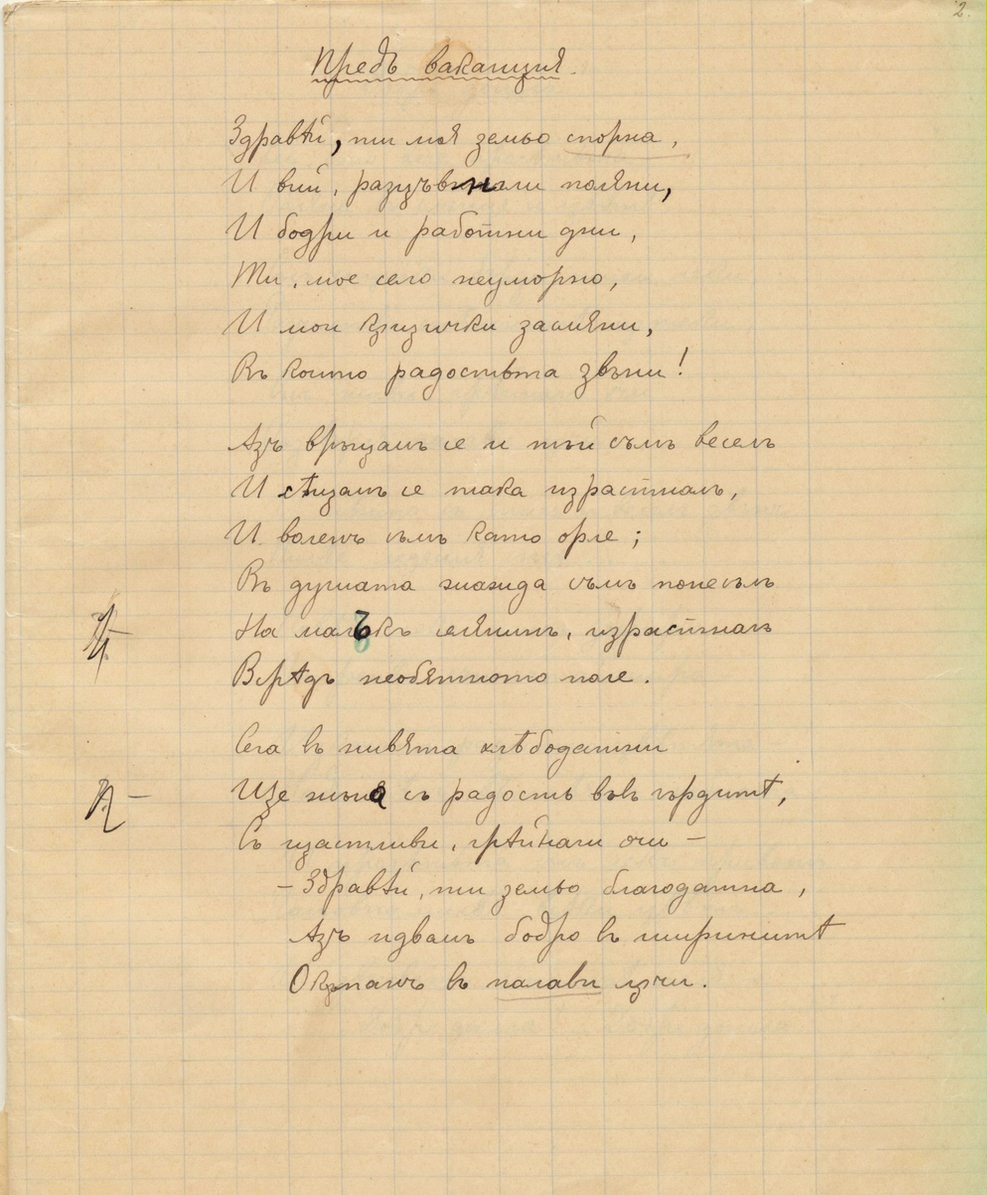 2.
Предъ ваканция.
Здравѣй, ти моя земьо спорна,
И вий, разцъвнали поляни,
И бодри и работни дни,
Ти, мое село неуморно,
И мои къщички засмѣни,
Въ които радостьта звъни!
Азъ връщамъ се и тъй съмъ веселъ
И сѣщамъ се така израстналъ,
И воленъ съмъ като орле;
Въ душата жажда съмъ понесълъ
На малъкъ селянинъ, израстналъ
Всрѣдъ необятното поле.
Сега въ нивята хлѣбодатни
Ще жъна съ радость въвъ гърдитѣ,
Съ щастливи, грѣйнали очи –
– Здравѣй, ти земьо благодатна,
Азъ идвамъ бодро въ ширинитѣ
Окѫпанъ въ палави лѫчи.